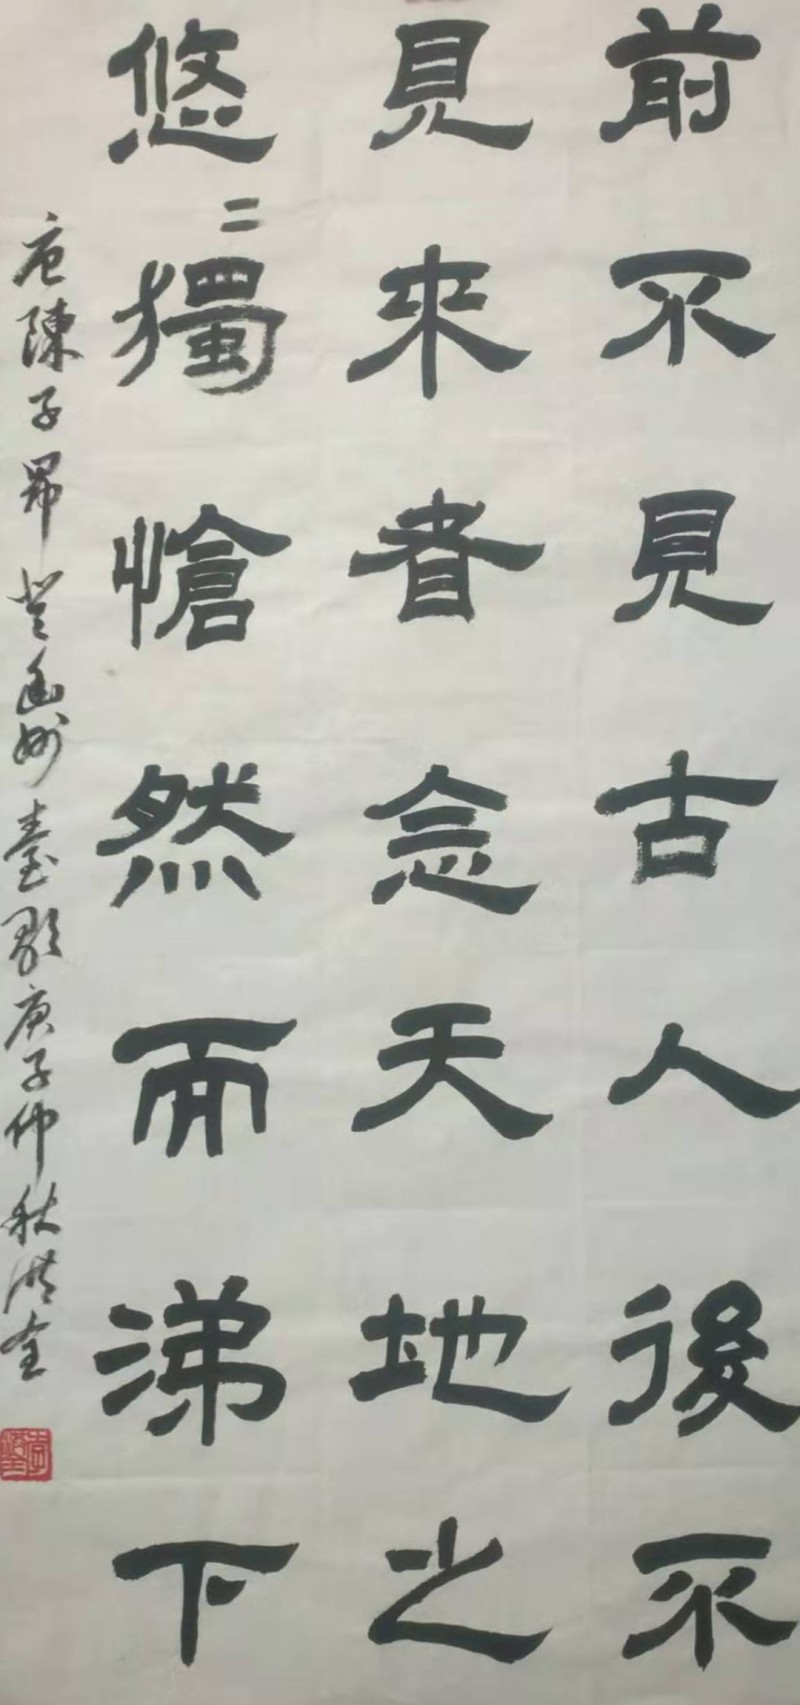 前不見古人後不
見來者念天地之
悠〻獨愴然而涕下
唐陳子昂登幽州臺歌庚子仲秋洪全